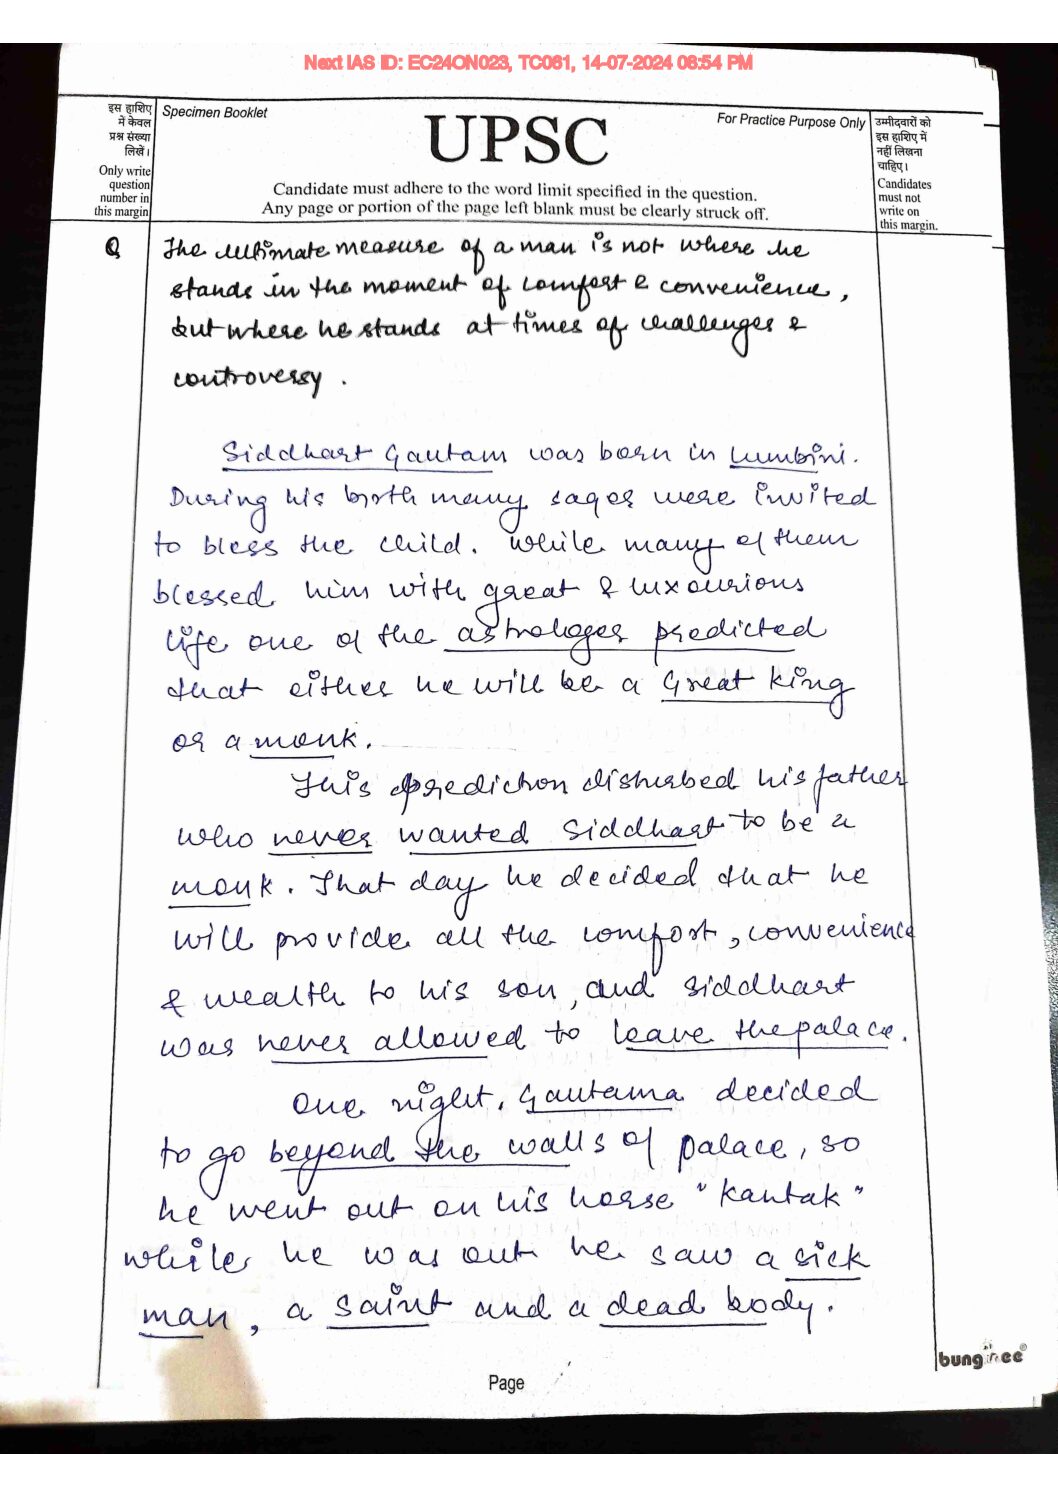 Next IAS ID: EC24ON023, TC061, 14-07-2024 06:54 PM
इस हाशिए
में केवल
प्रश्न संख्या
लिखें।
Only write
question
number in
this margin
Specimen Booklet
UPSC
For Practice Purpose Only
Candidate must adhere to the word limit specified in the question.
Any page or portion of the page left blank must be clearly struck off.
उम्मीदवारों को
इस हाशिए में
नहीं लिखना
चाहिए।
Candidates
must not
write on
this margin.
Q
The ultimate measure of a man is not where he
stands in the moment of comfort & convenience,
but where he stands at times of challenges &
controversy.
Siddhart Gautam was born in Lumbini.
During his birth many sages were invited
to bless the child. While many of them
blessed him with great & luxourious
life one of the astrologer predicted
that either he will be a Great King
or a monk.
This prediction disturbed his father
who never wanted Siddhart to be a
monk. That day he decided that he
will provide all the comfort, convenience
& wealth to his son, and Siddhart
was never allowed to leave the palace.
One night, Gautama decided
to go beyond the walls of palace, so
he went out on his horse "Kantak"
while he was out he saw a sick
man, a saint and a dead body.
Page
bung ee